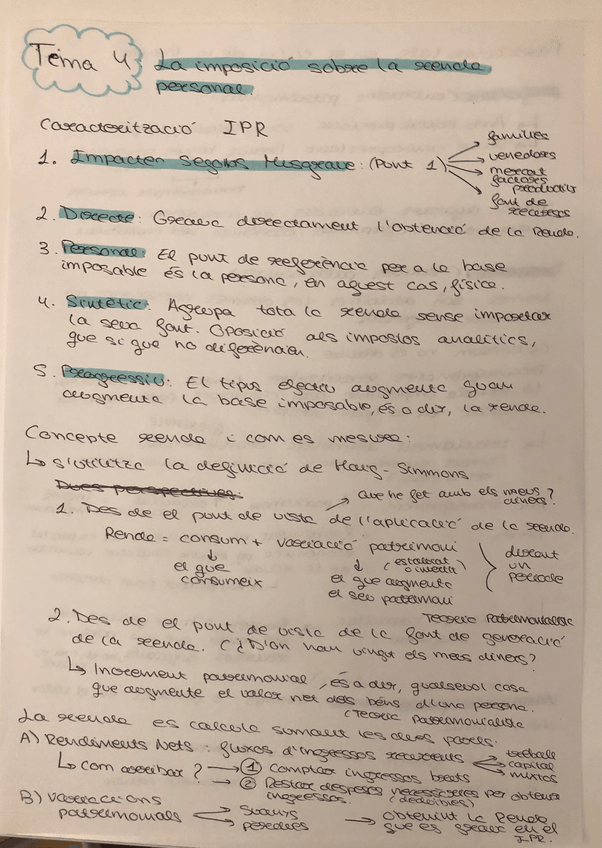 Tema 4 La imposició sobre la renda
personal.
Caracterització IPR
1. Impacten segons Musgrave: (Punt 1)
families
venedors
mercat
factors
productiu
font de
recursos
2. Directe: Grava directament l'obtenció de la Renda.
3. Personal: El punt de referència per a la base
imposable és la persona, en aquest cas, física.
4. Sintètic: Agrupa tota la renda sense importar
la seva font. Oposició als impostos analítics,
que si que no diferèncien.
5. Progressiu: El tipus efectiu augmenta quan
augmenta la base imposable, és a dir, la renda.
Concepte renda i com es mesura:
↳ s'utilitza la definició de Haig-Simmons
Dues perspectives:
Que he fet amb els meus diners?
1. Des de el punt de vista de l'aplicació de la renda.
Renda = consum + variació patrimoni
el que
consumeix
(estalviat
o invertit)
el que augmenta
el seu patrimoni
durant
un
període
Teoria Patrimonialista
2. Des de el punt de vista de la font de generació
de la renda. (¿D'on han vingut els meus diners?
↳ Increment patrimonial, és a dir, qualsevol cosa
que augmenta el valor net dels béns d'una persona.
(Teoria Patrimonialista
La renda es calcula sumant les dues parts.
A) Rendiments Nets: fluxos d'ingressos recurrents
treball
capital
mixtos
↳ com arribar? → ① Comptar ingressos bruts
→ ② Restar despeses necessàries per obtenir
ingressos. (deduïbles)
B) Variacions
patrimonials
guanys
pèrdues
→ obtenint la Renda
que es grava en el
IPR.